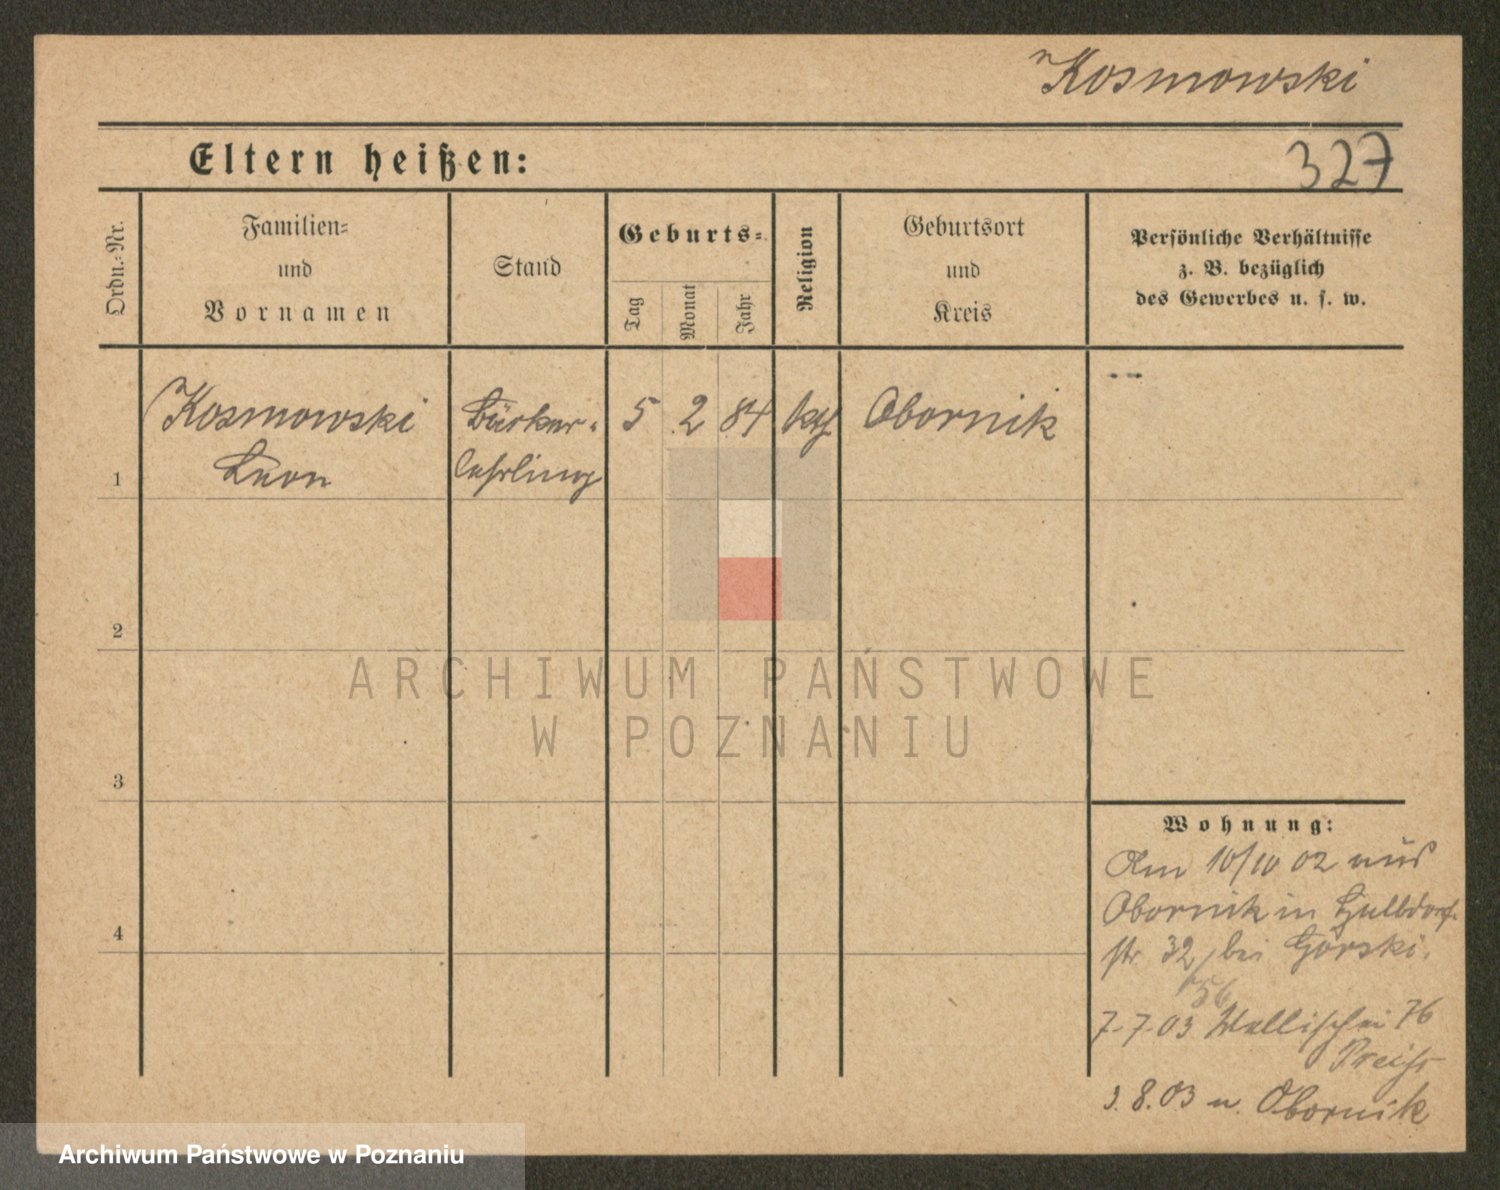 Kosmowski
327
Eltern heißen:
Ordn.-Nr.
Familien-
und
Vornamen
Stand
Geburts-
Tag
Monat
Jahr
Religion
Geburtsort
und
Kreis
Persönliche Verhältnisse
z. B. bezüglich
des Gewerbes u. s. w.
1
Kosmowski
Leon
Bäcker-
lehrling
5 2 84 kth Obornik
--
2
3
4
ARCHIWUM PAŃSTWOWE
W POZNANIU
Wohnung:
Am 10/10 02 aus
Obornik in Halbdorf-
str 32 bei Górski.
56
7.7.03 Wallischei 76
3.8.03 n. Obornik
Archiwum Państwowe w Poznaniu